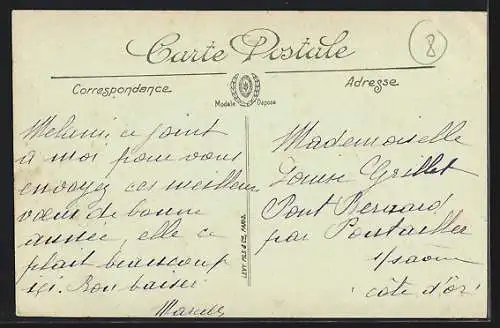 Carte Postale
8
Correspondance
Adresse
Modèle Déposé
Melanie ce joint
à moi pour vous
envoyez ces meilleurs
vœux de bonne
année, elle ce
plait beaucoup
ici. Bon baiser
Marcelle
LEVY FILS & Cie, PARIS.
Mademoiselle
Louise Grillet
Pont Bernard
par Pontailler
s/saône
côte d'or